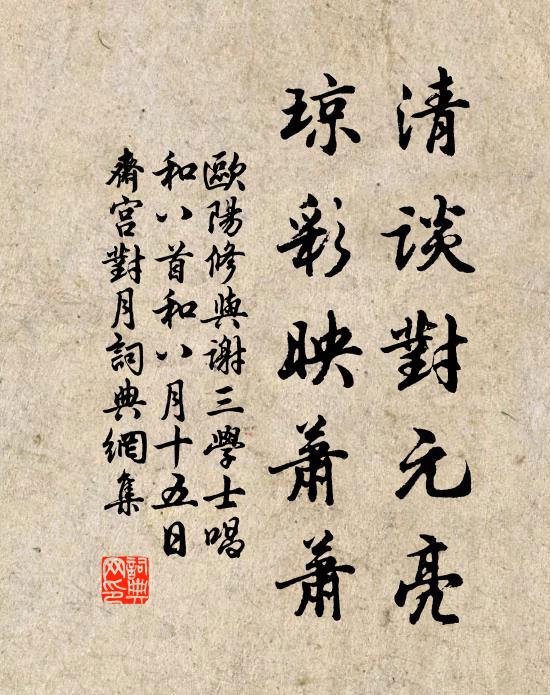 清談對元亮
琼彩映蕭蕭
歐陽修與謝三學士唱
和八首和八月十五日
齋宫對月詞典網集
詞典
网印